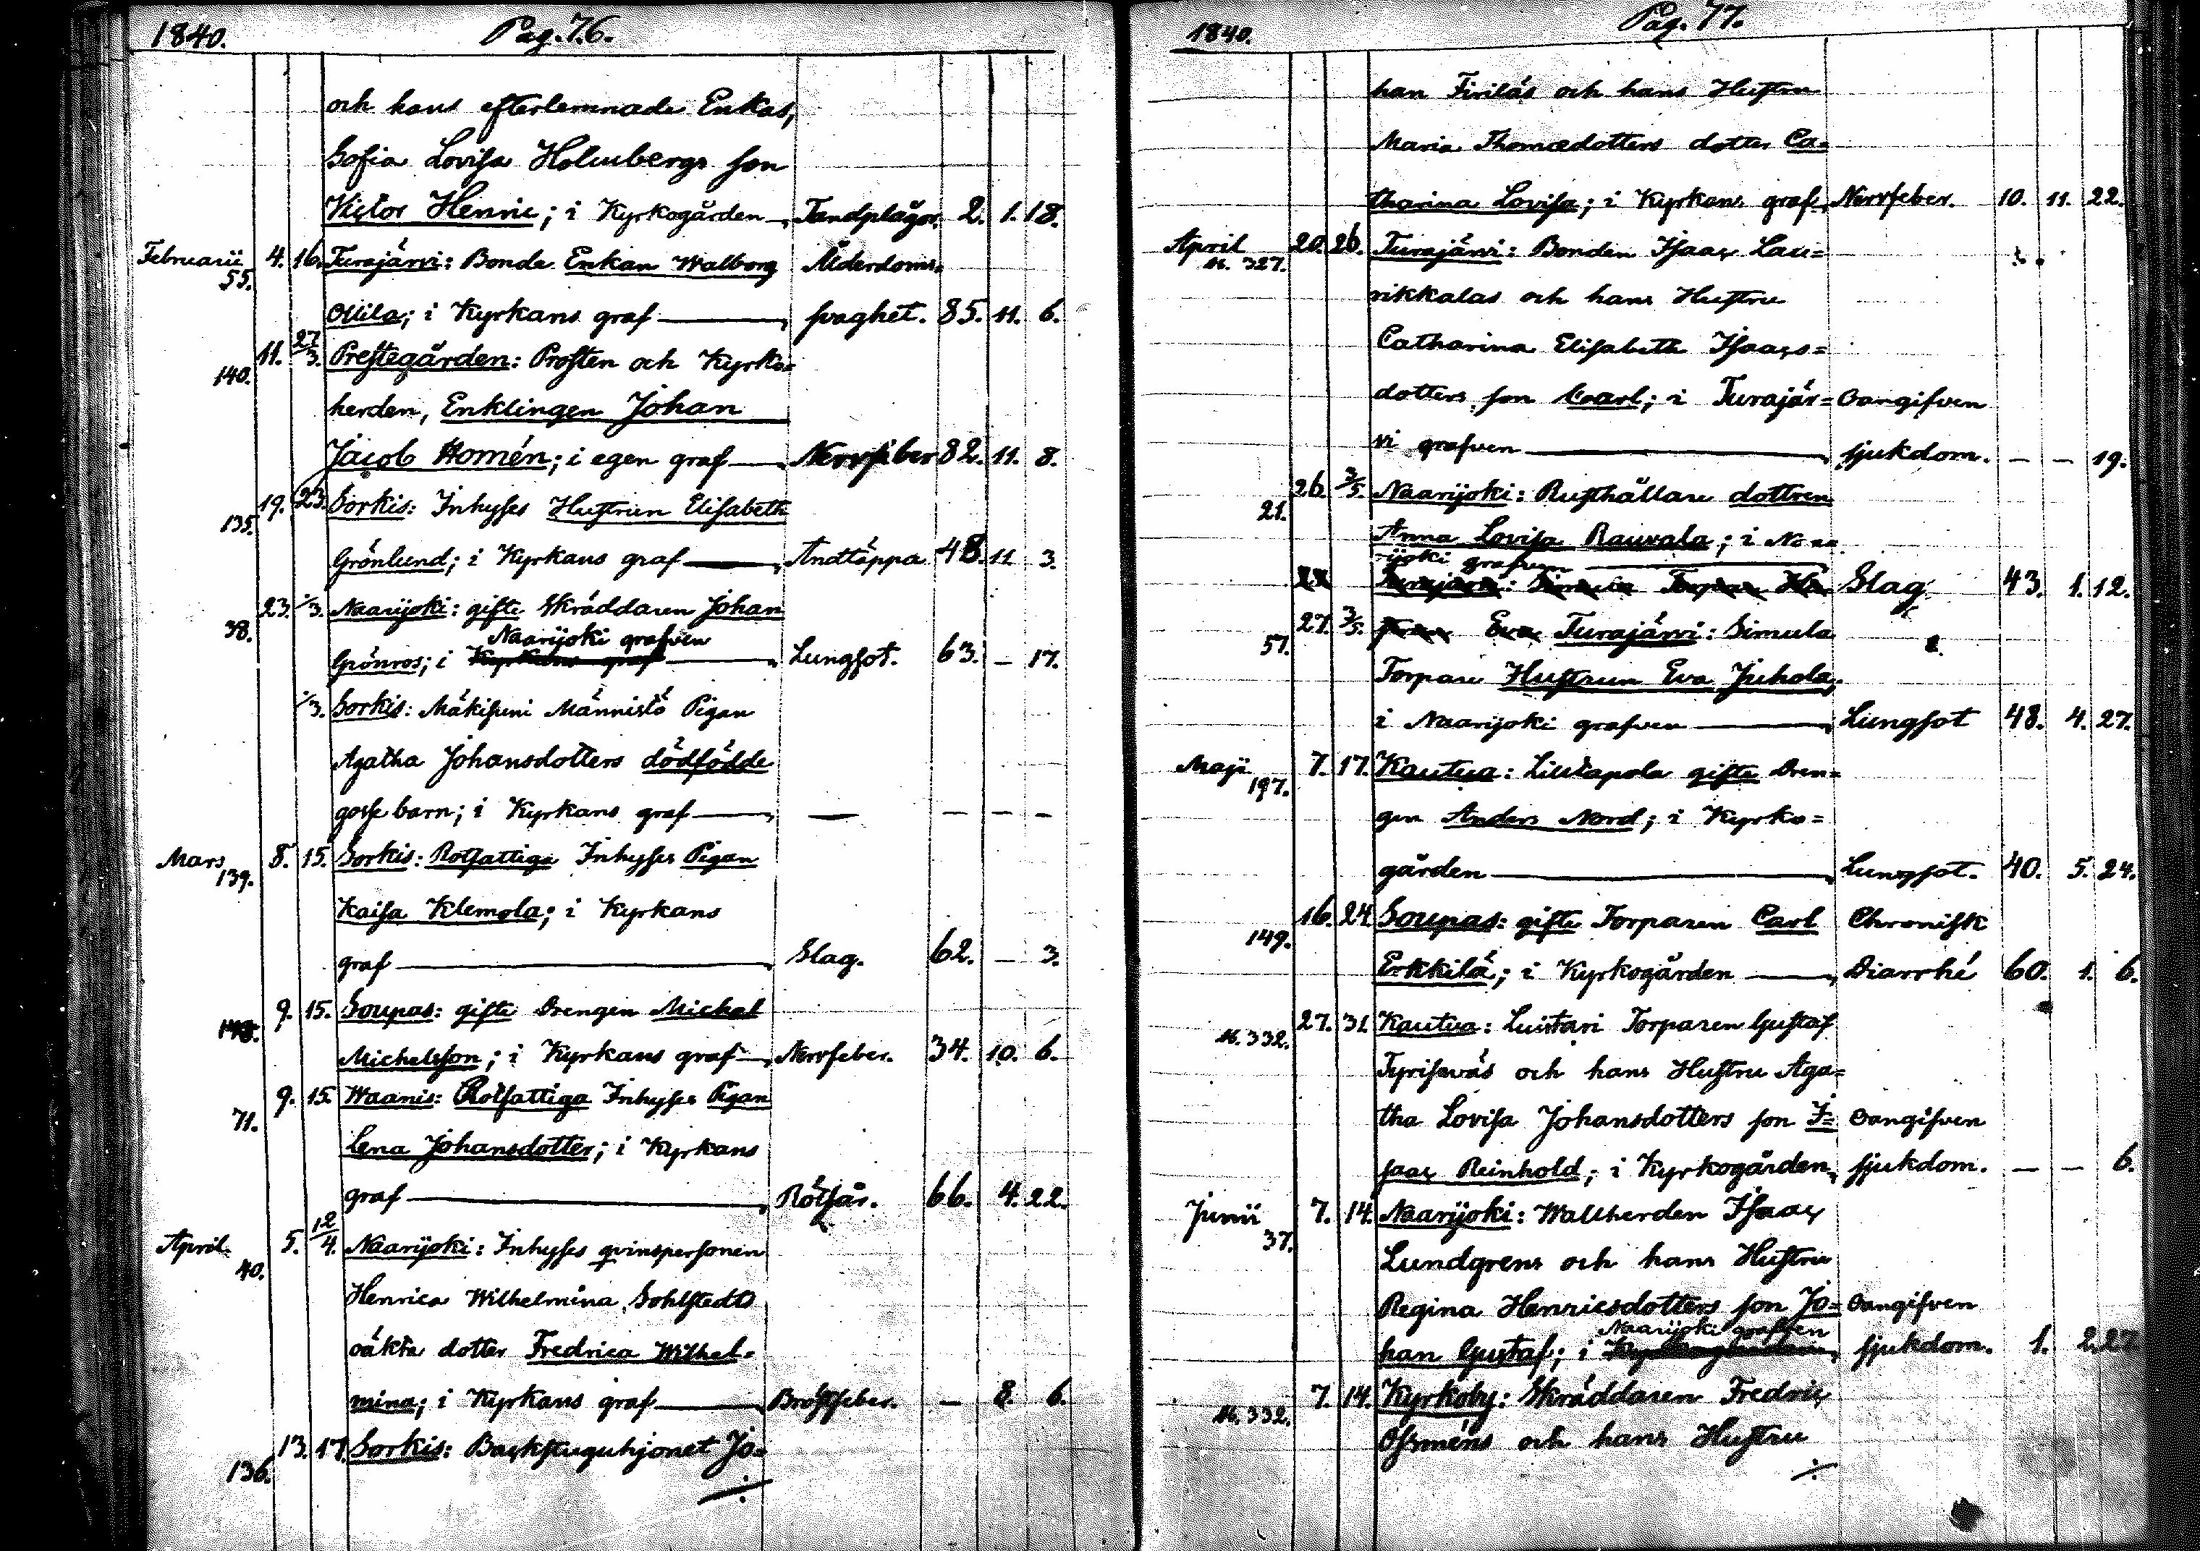 1840. Pag. 76.
och hans efterlemnade Enkas,
Sofia Lovisa Holmbergs son
Victor Henric; i Kyrkogården Tandplågor. 2. 1. 18.
Februarii 4. 16. Turajärvi: Bonde Enkan Walborg Ålderdoms-
55.
Ollila; i Kyrkans graf svaghet. 85. 11. 6.
11. 27/3. Prestegården: Prosten och Kyrko-
140.
herden, Enklingen Johan
Jacob Homén; i egen graf Nervfeber 82. 11. 8.
19. 23. Sorkis: Inhyses Hustrun Elisabeth
135.
Grönlund; i Kyrkans graf Andtäppa 48. 11. 3.
23. 1/3. Naarijoki: gifte Skräddaren Johan
38.
Naarijoki grafven
Grönros; i Kyrkans graf Lungsot. 63. – 17.
1/3. Sorkis: Mäkisuni Männistö Pigan
Agatha Johansdotters dödfödde
gosse barn; i Kyrkans graf — — — —
Mars 8. 15. Sorkis: Rotfattiga Inhyses Pigan
139.
Kaisa Klemola; i Kyrkans
graf Slag. 62. – 3.
9. 15. Soupas: gifte Drengen Michel
148.
Michelsson; i Kyrkans graf Nervfeber. 34. 10. 6.
9. 15. Waanis: Rotfattiga Inhyses Pigan
71.
Lena Johansdotter; i Kyrkans
graf Rötsår. 66. 4. 22.
April 5. 12/4. Naarijoki: Inhyses qvinspersonen
40.
Henrica Wilhelmina Sohlstedts
oäkta dotter Fredrica Wilhel-
mina; i Kyrkans graf Bröstfeber. – 8. 6.
13. 17. Sorkis: Backstuguhjonet Jo-
136.
1840. Pag. 77.
han Firilás och hans Hustru
Maria Thomædotters dotter Ca-
tharina Lovisa; i Kyrkans graf, Nervfeber. 10. 11. 22.
April 20. 26. Turajärvi: Bonden Isaac Lau-
M. 327.
rikkalas och hans Hustru
Catharina Elisabeth Isaacs-
dotters son Carl; i Turajär- Oangifven
vi grafven sjukdom. – – 19.
26. 3/5. Naarijoki: Rusthållare dottren
21.
Anna Lovisa Rauvala; i Naa-
rijoki grafven
Turajärvi: Simula Torpare Slag 43. 1. 12.
27. 3/5. Eva Turajärvi: Simula
57.
Torpare Hustrun Eva Juhola;
i Naarijoki grafven Lungsot 48. 4. 27.
Maji 7. 17. Kautua: Liutapola gifte Dren-
197.
gen Anders Nord; i Kyrko-
gården Lungsot. 40. 5. 24.
16. 24. Soupas: gifte Torparen Carl Chronisk
149.
Erkkilä; i Kyrkogården Diarrhé 60. 1. 6.
27. 31. Kautua: Luistari Torparen Gustaf
M. 332.
Tyrisevás och hans Hustru Aga-
tha Lovisa Johansdotters son I- Oangifven
saac Reinhold; i Kyrkogården, sjukdom. – – 6.
Junii 7. 14. Naarijoki: Wallherden Isaac
37.
Lundgrens och hans Hustru
Regina Henricsdotters son Jo- Oangifven
Naarijoki grafven
han Gustaf; i sjukdom. 1. 2. 27.
7. 14. Kyrkoby: Skräddaren Fredric
M. 332.
Ossméns och hans Hustru